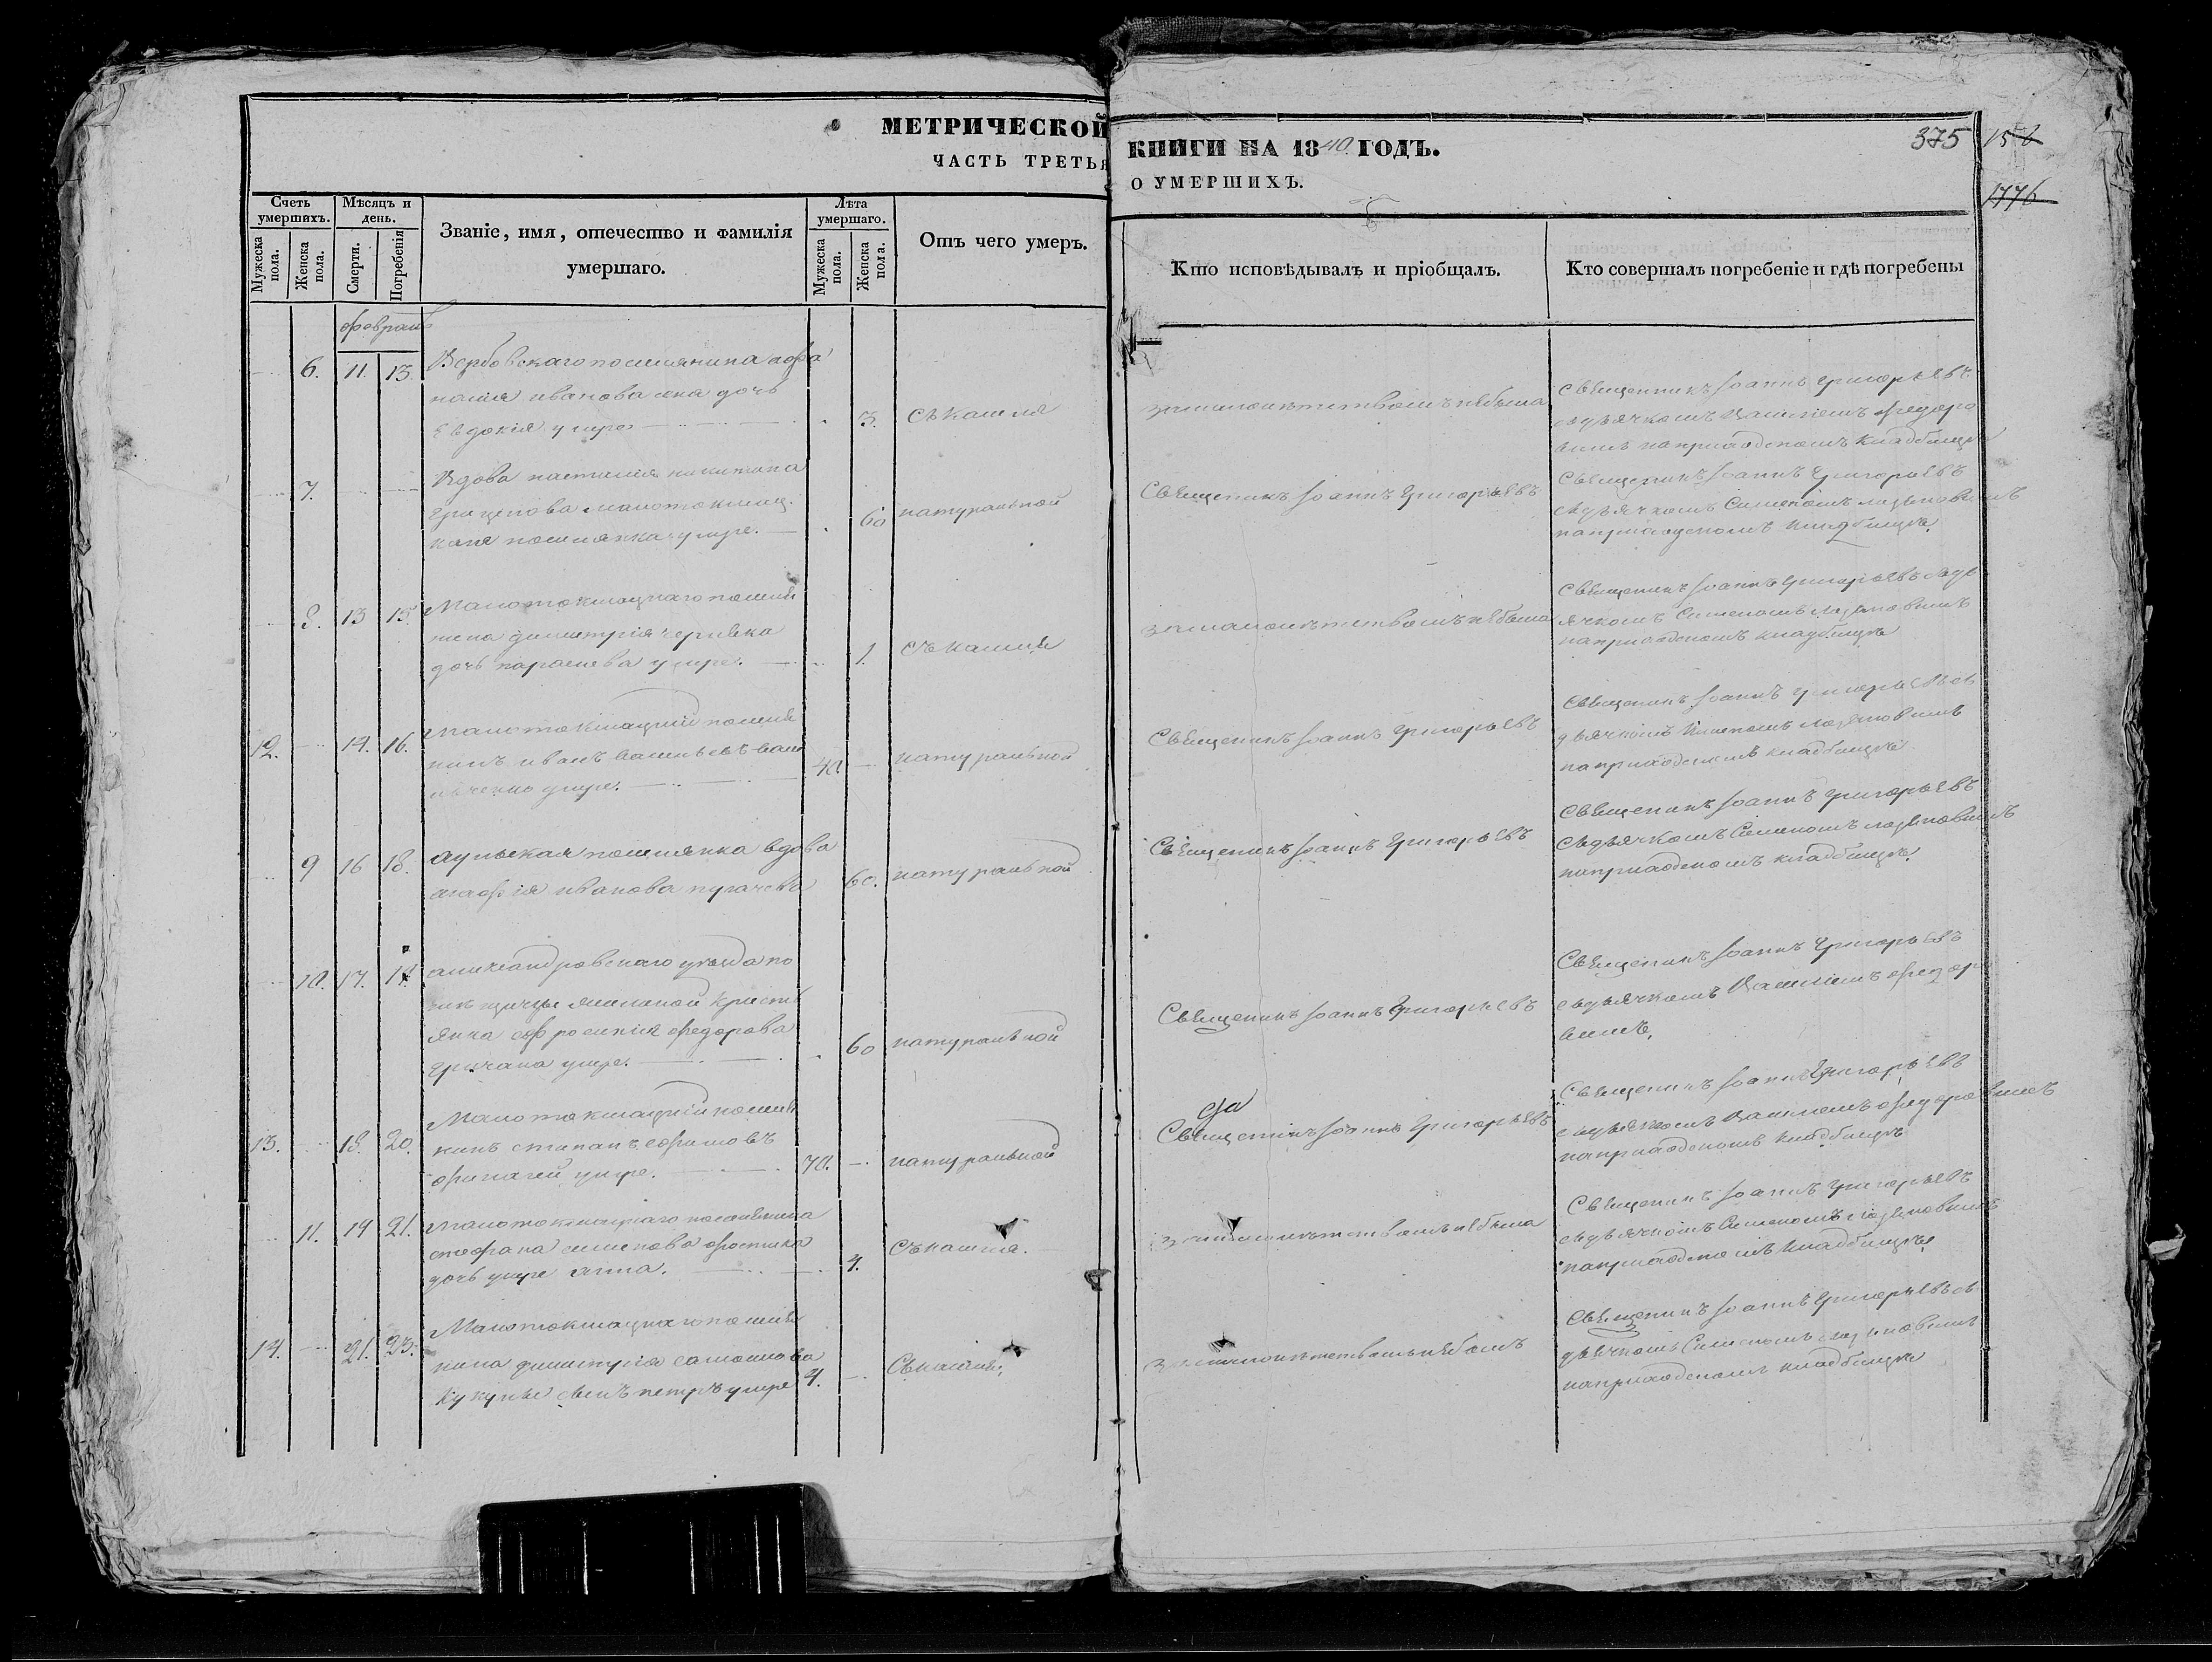 МЕТРИЧЕСКОЙ
ЧАСТЬ ТРЕТЬЯ
КНИГИ НА 1840 ГОДЪ.
О УМЕРШИХЪ.
375
1776
Счетъ умершихъ.
Мужеска пола.
Женска пола.
Мѣсяцъ и день.
Смерти.
Погребенія
Званіе, имя, отечество и фамилія умершаго.
Лѣта умершаго.
Мужеска пола.
Женска пола.
Отъ чего умеръ.
Кто исповѣдывалъ и пріобщалъ.
Кто совершалъ погребеніе и гдѣ погребены
февраль
6. 11. 13. Вербовскаго поселянина афа
насія иванова дочь
Евдокія умре 3. Съ кашля
за малолетствомъ небыла
Священникъ Іоаннъ Григорьевъ
сьдьячкомъ Василіемъ федоро
вымъ наприходскомъ кладбищѣ
7. Вдова настасія никитина
Грищенкова малотокмац.
кая поселянка умре. 60 натуральной
Священникъ Іоаннъ Григорьевъ
Священникъ Іоаннъ Григорьевъ
сьдьячкомъ Симеономъ
наприходскомъ кладбищѣ.
8. 13 15 Малотокмацкаго посели
нина димитрія
дочь параскева умре. 1. Съ кашля
за малолетствомъ небыла
Священникъ Іоаннъ Григорьевъ сьдь
ячкомъ Симеономъ
наприходскомъ кладбищѣ
12. 14. 16. Малотокмацкій поселя
нинъ иванъ васильевъ
умре. 40 натуральной
Священникъ Іоаннъ Григорьевъ
Священникъ Іоаннъ Григорьевъ сь
дьячкомъ Симеономъ
наприходскомъ кладбищѣ
9 16 18. поселянка вдова
агафія иванова пугачева 60. натуральной
Священникъ Іоаннъ Григорьевъ
Священникъ Іоаннъ Григорьевъ
сьдьячкомъ Симеономъ
наприходскомъ кладбищѣ.
10. 17. александровскаго уезда по
мѣщицы крестья
янка ефросинія федорова
умре. 60 натуральной
Священникъ Іоаннъ Григорьевъ
Священникъ Іоаннъ Григорьевъ
сьдьячкомъ Василіемъ федоро
вымъ.
13. 18. 20. Малотокмацкій поселя
нинъ стипанъ ефимовъ
умре. 70. натуральной
Священникъ Іоаннъ Григорьевъ
Священникъ Іоаннъ Григорьевъ
сьдьячкомъ Василіемъ федоровымъ
наприходскомъ кладбищѣ
11. 19 21. Малотокмацкаго поселянина
стефана семенова
дочь умре анна. 4. Съ кашля.
за малолетствомъ небыла
Священникъ Іоаннъ Григорьевъ
сьдьячкомъ Симеономъ
наприходскомъ кладбищѣ
14. 21. 23. Малотокмацкаго поселя
нина димитрія
сынъ петръ умре 4. Съ кашля.
за малолетствомъ небылъ
Священникъ Іоаннъ Григорьевъ сь
дьячкомъ Симеономъ
наприходскомъ кладбищѣ